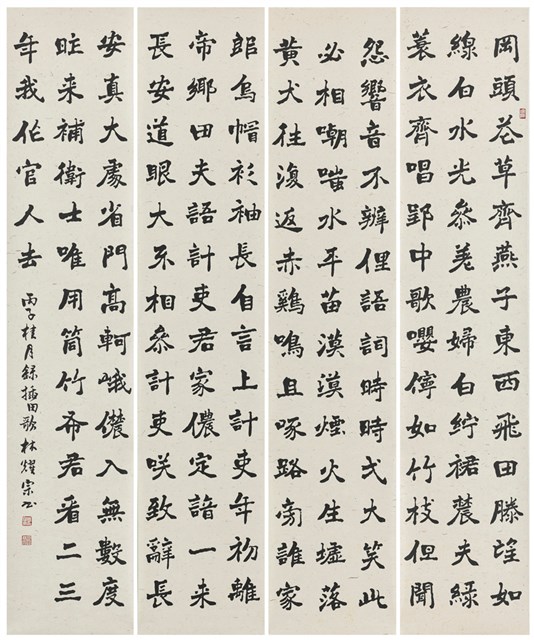 岡頭花草齊燕子東西飛田塍望如
線白水光參差農婦白紵裙農夫綠
蓑衣齊唱郢中歌嚶儜如竹枝但聞
怨響音不辨俚語詞時時弌大笑此
必相嘲嗤水平苗漠漠煙火生墟落
黃犬往復返赤雞鳴且啄路旁誰家
郎烏帽衫袖長自言上計吏年初離
帝鄉田夫語計吏君家儂定諳一來
長安道眼大不相參計吏咲致辭長
安真大處省門高軻峨儂入無數度
昨來補衛士唯用筒竹布君看二三
年我作官人去
丙子桂月錄插田歌林耀宗書